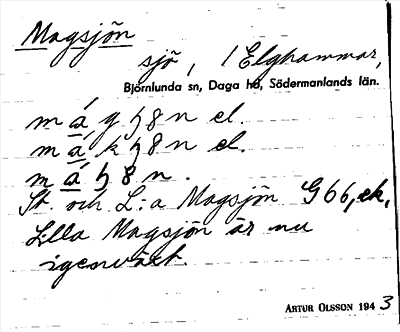 Magsjön
sjö, i Elghammar,
Björnlunda sn, Daga hd, Södermanlands län.
m á g ꞕ 8 n el.
m á k ꞕ 8 n el.
m á ꞕ 8 n.
St. och L:a Magsjön G 66, ek.
Lilla Magsjön är nu
igenväxt.
ARTUR OLSSON 1943